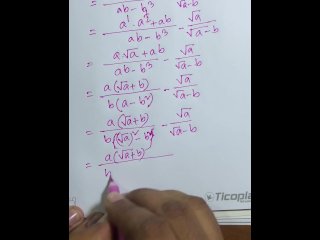 = ab - b³ √a - b
= a¹ · a^½ + ab / ab - b³ - √a / √a - b
= a·√a + ab / ab - b³ - √a / √a - b
= a(√a + b) / b(a - b²) - √a / √a - b
= a(√a + b) / b{(√a)² - b²} - √a / √a - b
= a(√a + b) / b
Ticopla